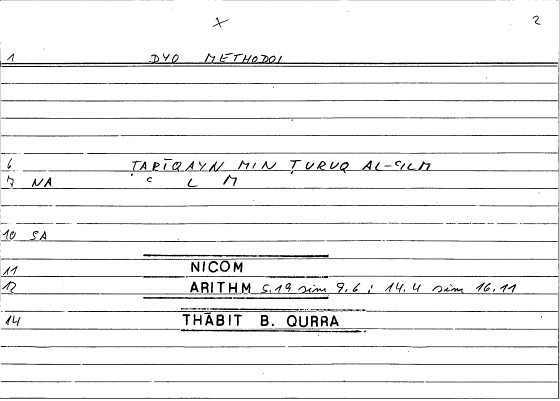 x 2
1 DYO METHODOI
6 ṬARĪQAYN MIN ṬURUQ AL-ʿILM
7 NA ʿ L M
10 SA
11 NICOM
12 ARITHM 5.19 sim 9.6 ; 14.4 sim 16.11
14 THĀBIT B. QURRA